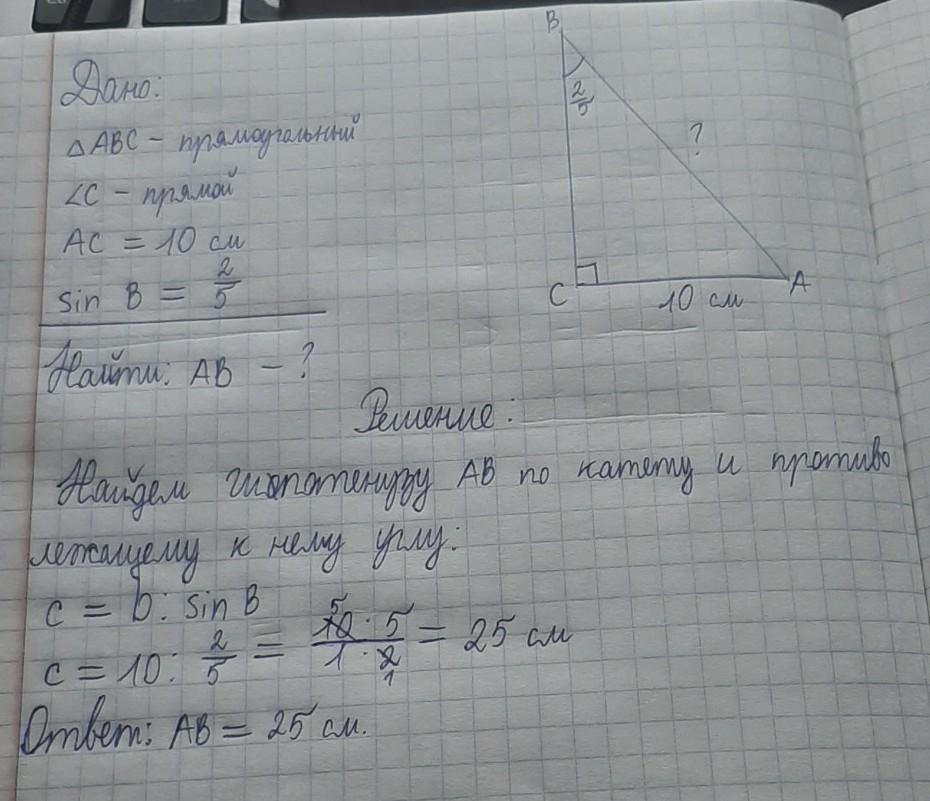 Дано:
△ABC – прямоугольный
∠C – прямой
AC = 10 см
sin B = 2/5
Найти: AB – ?
B
2/5
?
C
10 см
A
Решение:
Найдем гипотенузу AB по катету и противо
лежащему к нему углу:
c = b : sin B
c = 10 : 2/5 = 10 · 5 / 1 · 2 = 25 см
5
1
Ответ: AB = 25 см.